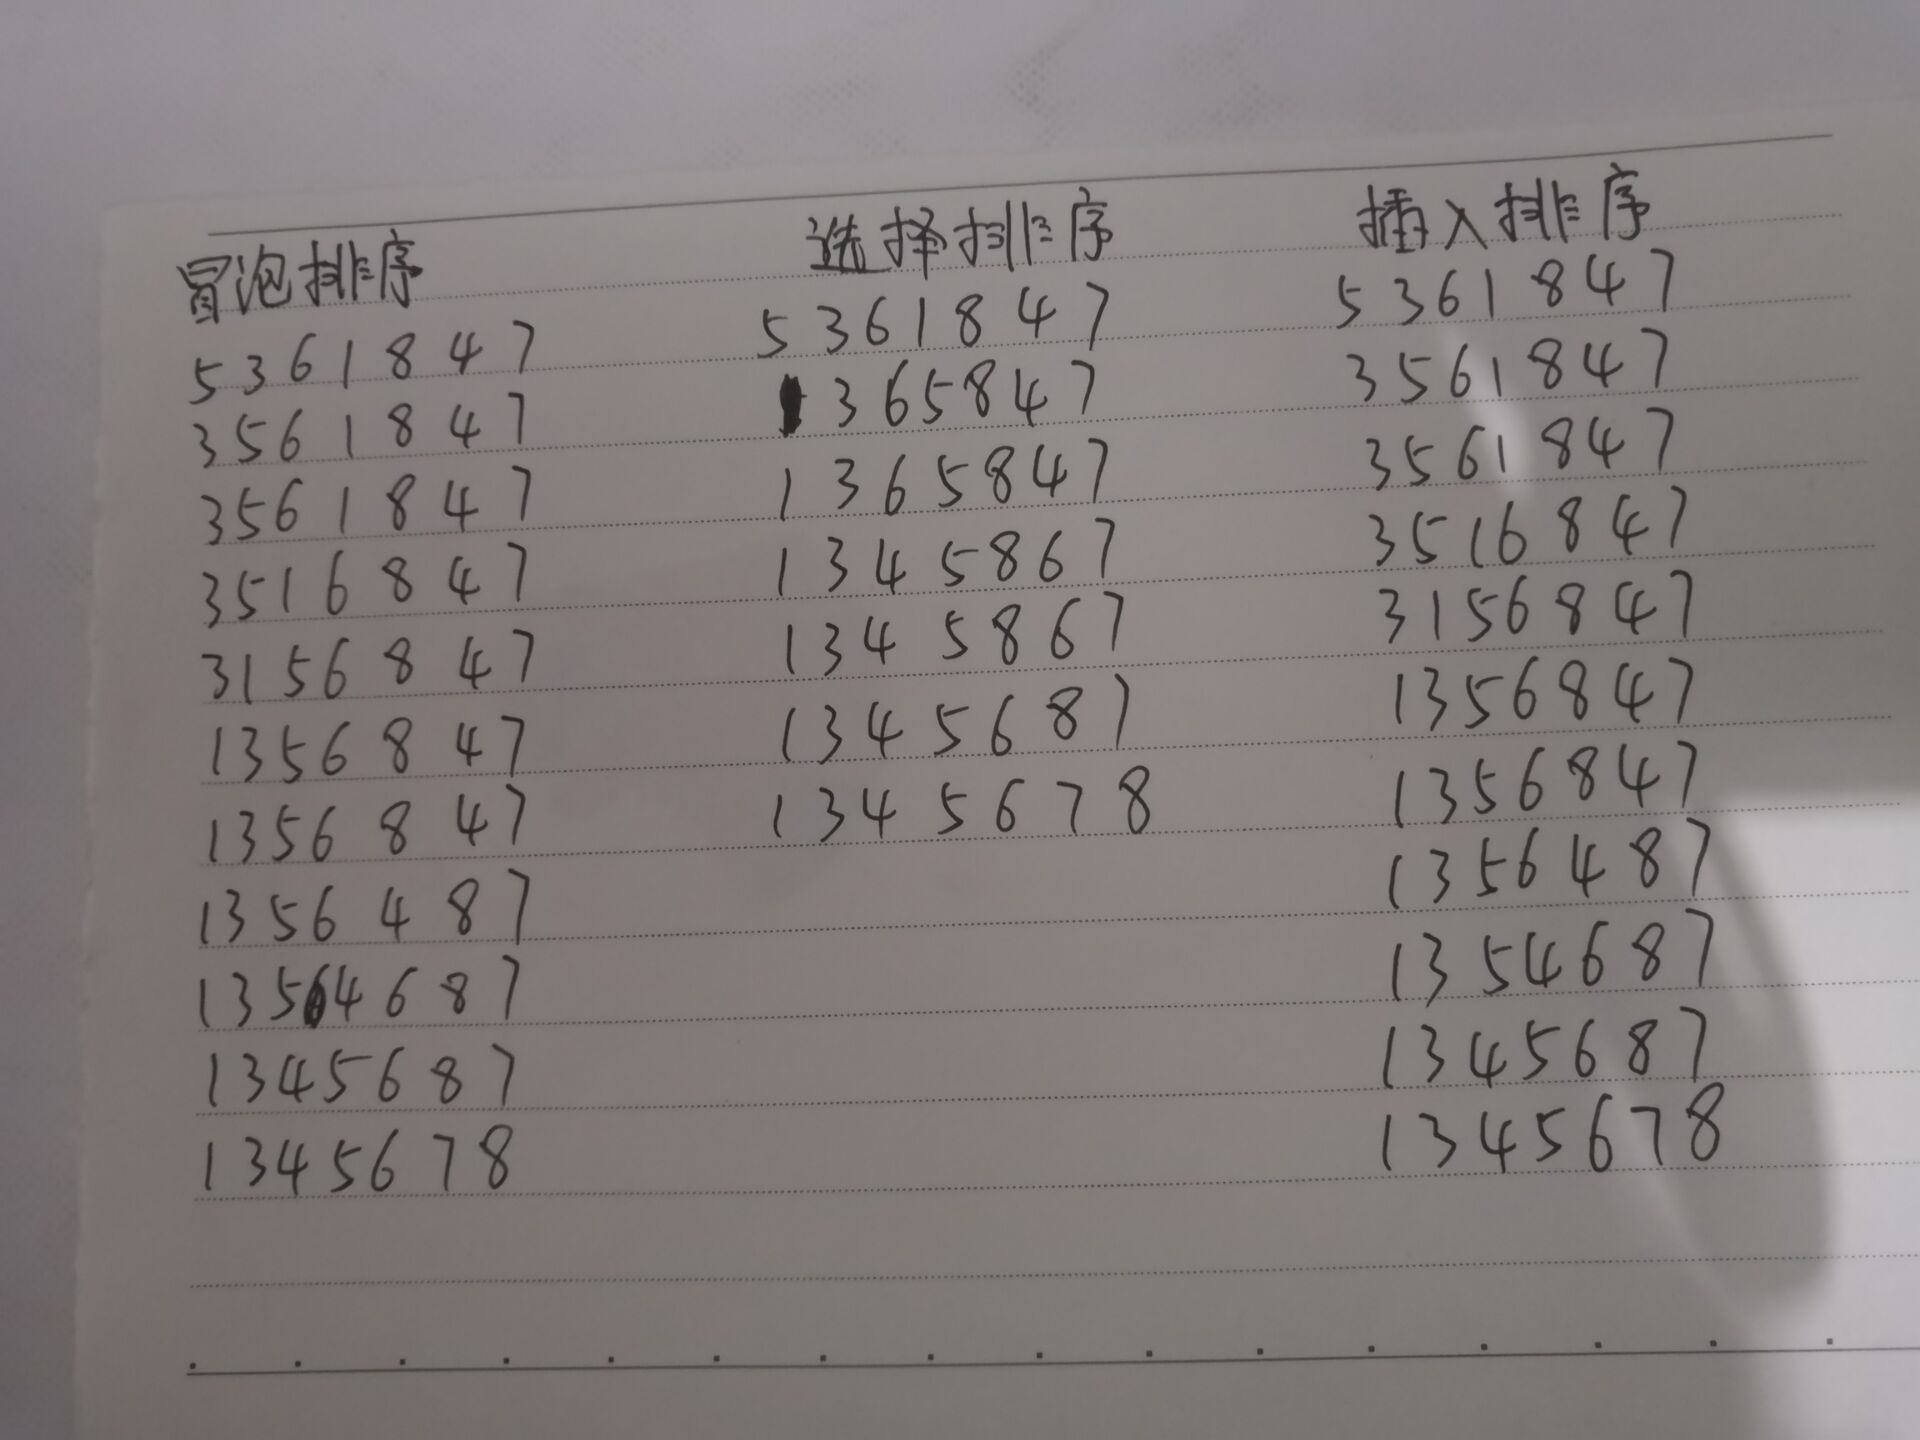 冒泡排序
5 3 6 1 8 4 7
3 5 6 1 8 4 7
3 5 6 1 8 4 7
3 5 1 6 8 4 7
3 1 5 6 8 4 7
1 3 5 6 8 4 7
1 3 5 6 8 4 7
1 3 5 6 4 8 7
1 3 5 4 6 8 7
1 3 4 5 6 8 7
1 3 4 5 6 7 8
选择排序
5 3 6 1 8 4 7
1 3 6 5 8 4 7
1 3 6 5 8 4 7
1 3 4 5 8 6 7
1 3 4 5 8 6 7
1 3 4 5 6 8 7
1 3 4 5 6 7 8
插入排序
5 3 6 1 8 4 7
3 5 6 1 8 4 7
3 5 6 1 8 4 7
3 5 1 6 8 4 7
3 1 5 6 8 4 7
1 3 5 6 8 4 7
1 3 5 6 8 4 7
1 3 5 6 4 8 7
1 3 5 4 6 8 7
1 3 4 5 6 8 7
1 3 4 5 6 7 8